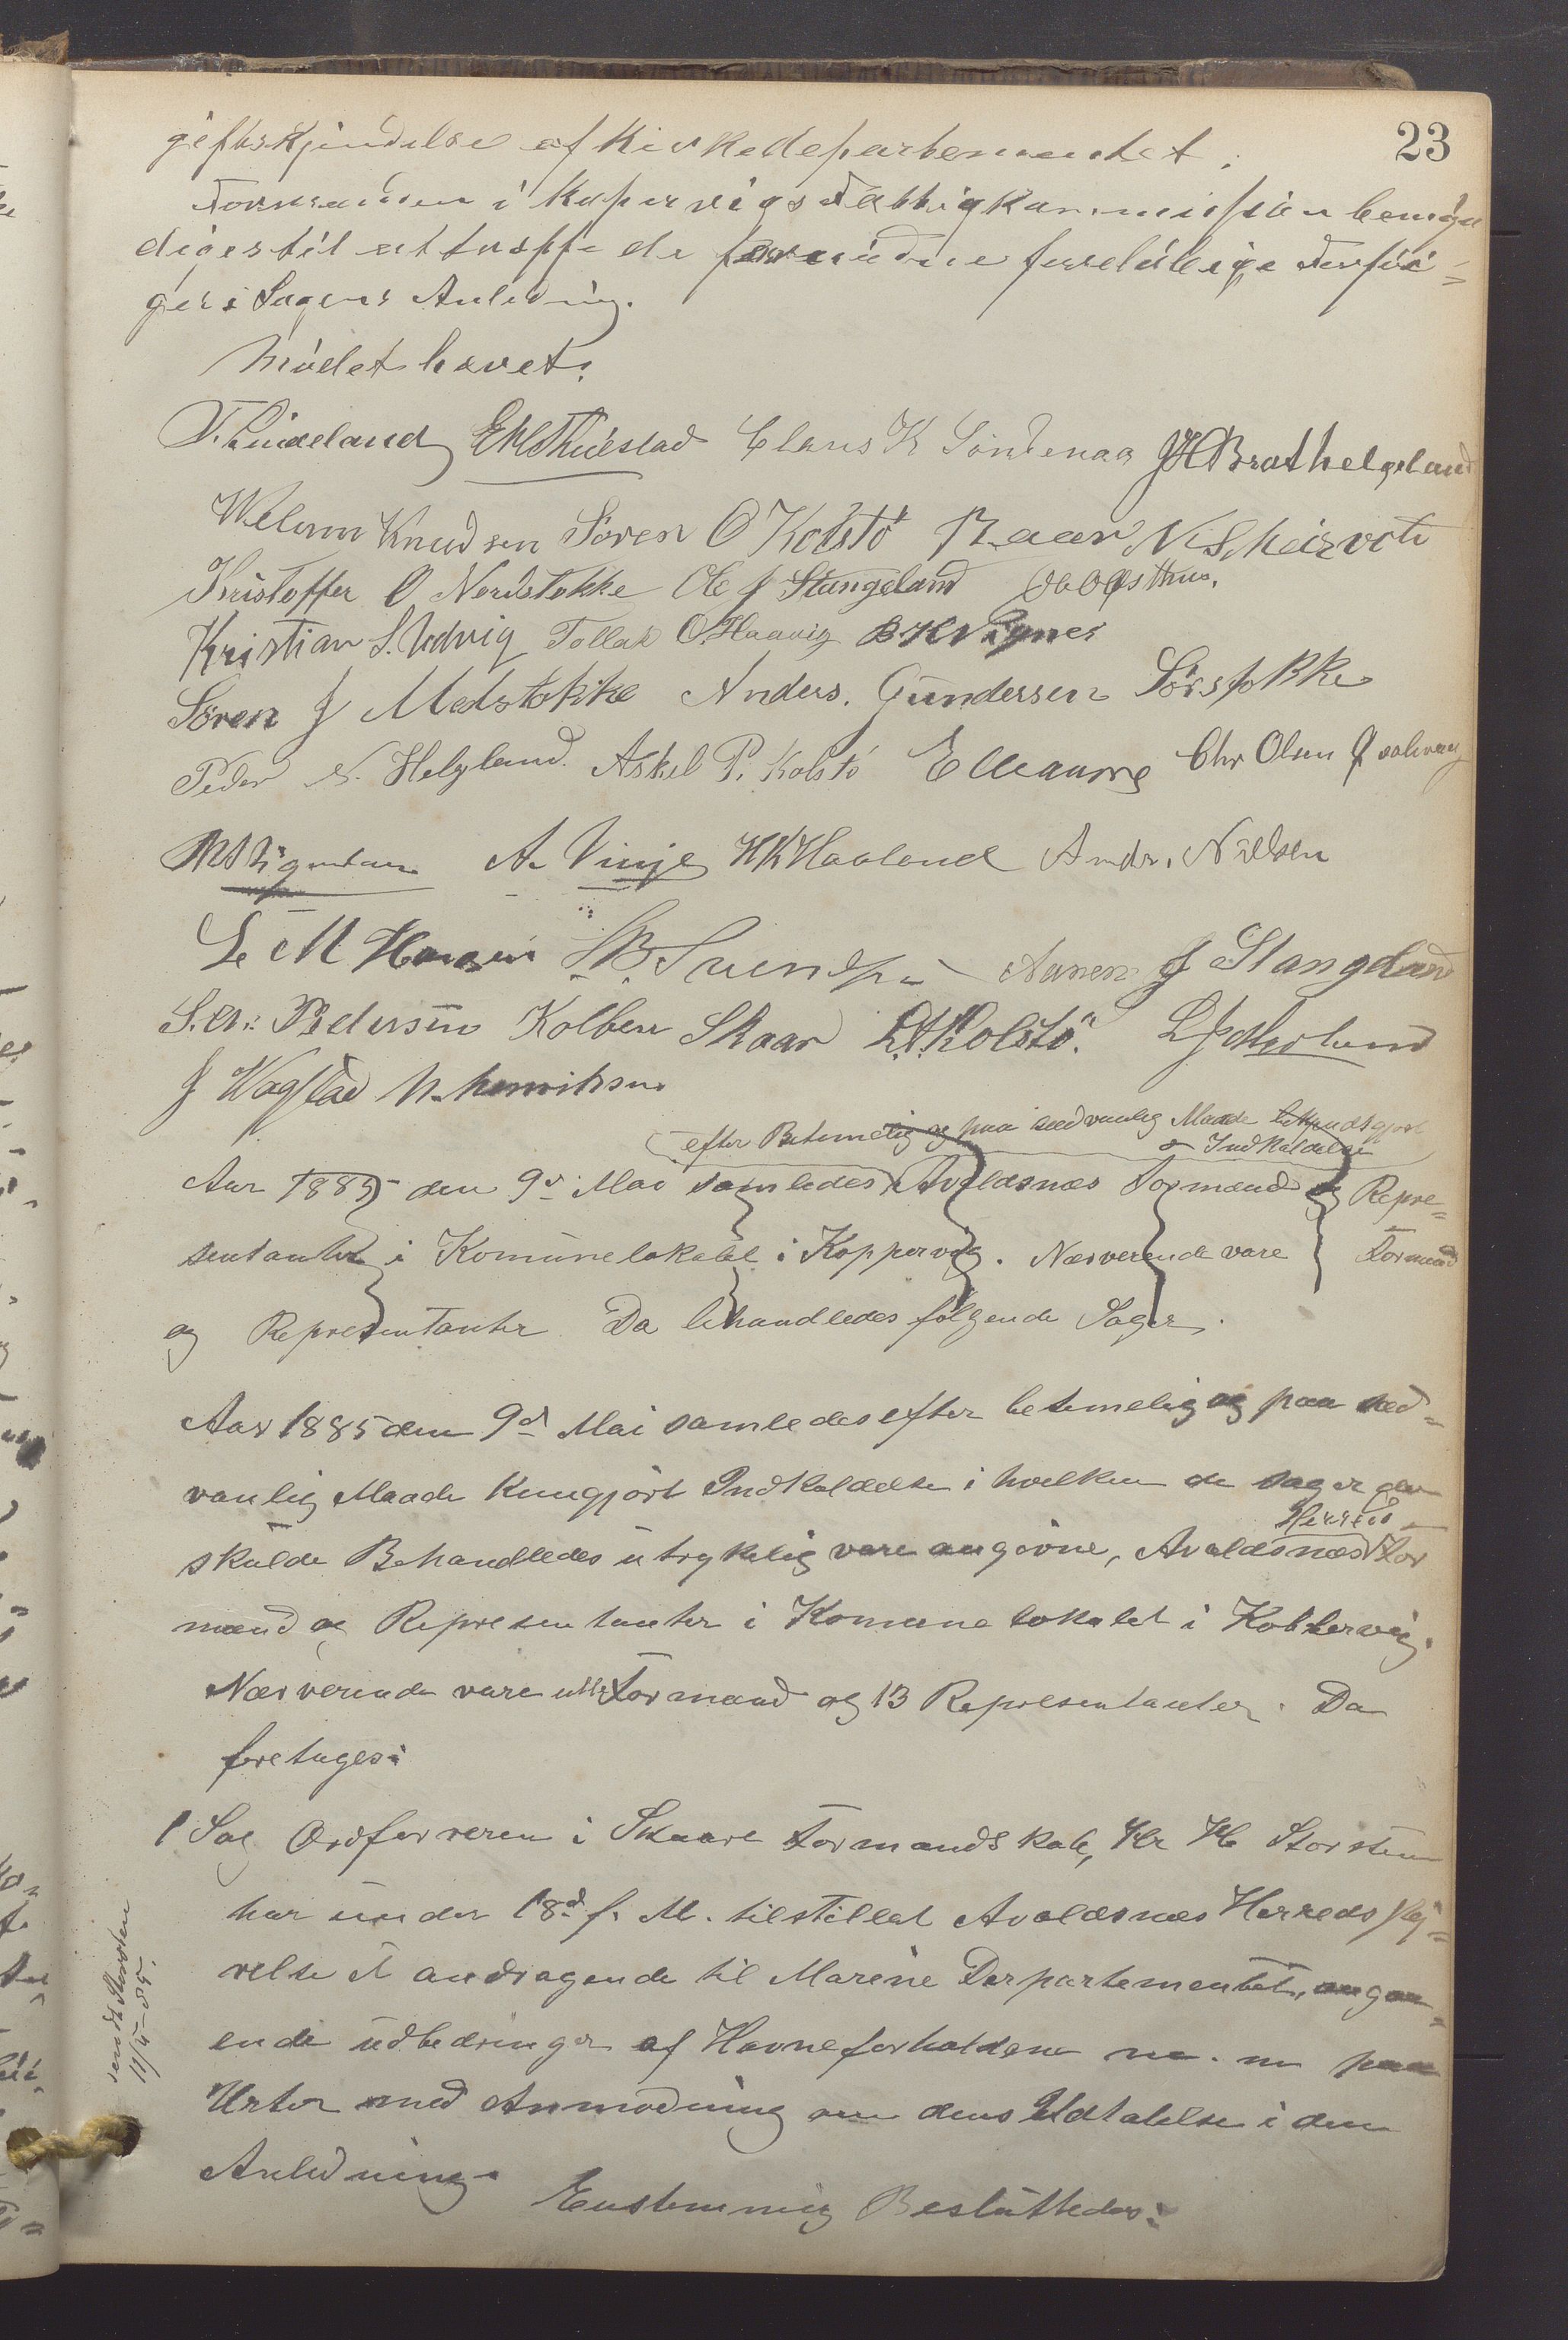 23
giftskjendelse af Kirkedepartementet.
Formanden i Kopervigs Fattigkommission bemyn
diges til at treffe de fornødne foreløbige Forføi=
ger i Sagens Anledning.
Mødet hævet.
T. Lindeland Claus K Søndenaa JHBrathelgeland
Welom Knudsen Søren O Kolstø
Kristoffer O Nordstokke Ole J Stangeland
Kristian S. Udvig Tollak O. Haavig BKVignes
Søren J Medstokke Anders. Gundersen Sørstokke
Peder N. Helgland. Askel P. Kolstø Chr Olsen
A. Vinje HKHaaland Andr. Nilsen
L M Hansen Aanen J Stangeland
S. Pedersen Kolben Skaar Kolstø.
J Wagstad Henriksen
efter Betimelig og paa sædvanlig Maade bekjendtgjort
Indkaldelse
Aar 1885 den 9de Mai samledes Avaldsnæs Formænd og Repre=
sentanter i Komunelokalet i Koppervig. Nærverende vare Formænd
og Representanter Da behandledes følgende Sager.
Aar 1885 den 9de Mai samledes efter betimelig og paa sæd=
vanlig Maade Kungjørt Indkaldelse i hvilken de sager der
Herreds
skulde Behandledes utrykkelig vare angivne, Avaldsnæs For
mænd og Representanter i Komune lokalet i Kobbervig.
Nærverende vare alle Formænd og 13 Representanter. Da
foretages:
1 Sag Ordføreren i Skaare Formandskab, Hr H Storsteen
har under 18d f. M. tilstillet Avaldsnæs Herredssty=
relse et andragende til Marine Departementet, angaa=
ende udbedringer af Havneforholdene m. m paa
Urter med Anmodning om dens Udtalelse i den
Anledning.
Enstemmig Besluttedes:
sendt Storsten
11/5-85.